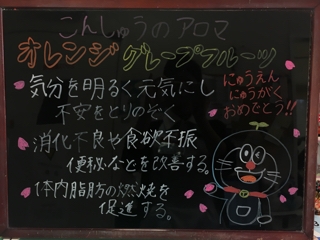 こんしゅうのアロマ
オレンジグレープフルーツ
気分を明るく元気にし
不安をとりのぞく
にゅうえん
にゅうがく
おめでとう!!
消化不良や食欲不振
便秘などを改善する。
体内脂肪の燃焼を
促進する。